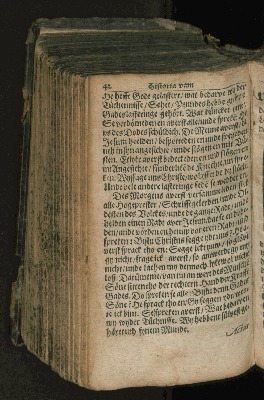 42 Historia vam
He hefft Gode gelastert, wat bedarve wy der
Tüchenisse, Sehet, Nu hebbe gy syne
Gadeslasteringe gehört. Wat düncket juw?
Se verdömeden en averst alle, unde spreken, He
ys des Dodes schüldich. De Menne averst, de
Jesum heelden, bespotteden en unde
en in syn angesichte, unde slögen en mit
sten. Etlike averst bedeckeden en unde slögen en
im Angesichte, sünderlick de Knechte, unde spre-
ken, Wyssage uns Christe, wol ys de dy sloch?
Unde vele andere lasteringe sede se wedder en.
Des Morgens averst versammelden sick
alle Hogeprester, Schrifftgelerden, unde de
desten des Volckes, unde de gantze Radt, unde
helden einen Radt aver Jesum, dat se en
den, unde vörden en henup vor eren Radt, unde
spreken, Bistu Christus segge ydt uns? He
averst sprack tho en, Segge ick ydt juw, so gelöve
gy nicht, frage ick averst, so antwerde gy
nicht, unde laten my dennoch
loß, Darümme van nu an wert des Minschen
Söne sittende der rechtern Handt der Krafft
Gades. Do spreken se alle, Bistu denn Gades
Söne? He sprack tho en, Gy seggen ydt, wente
ick bin. Se spreken averst, Wat behöve
wy wyder Tüchenisse, Wy hebbent sülvest ge-
höret uth synem Munde.